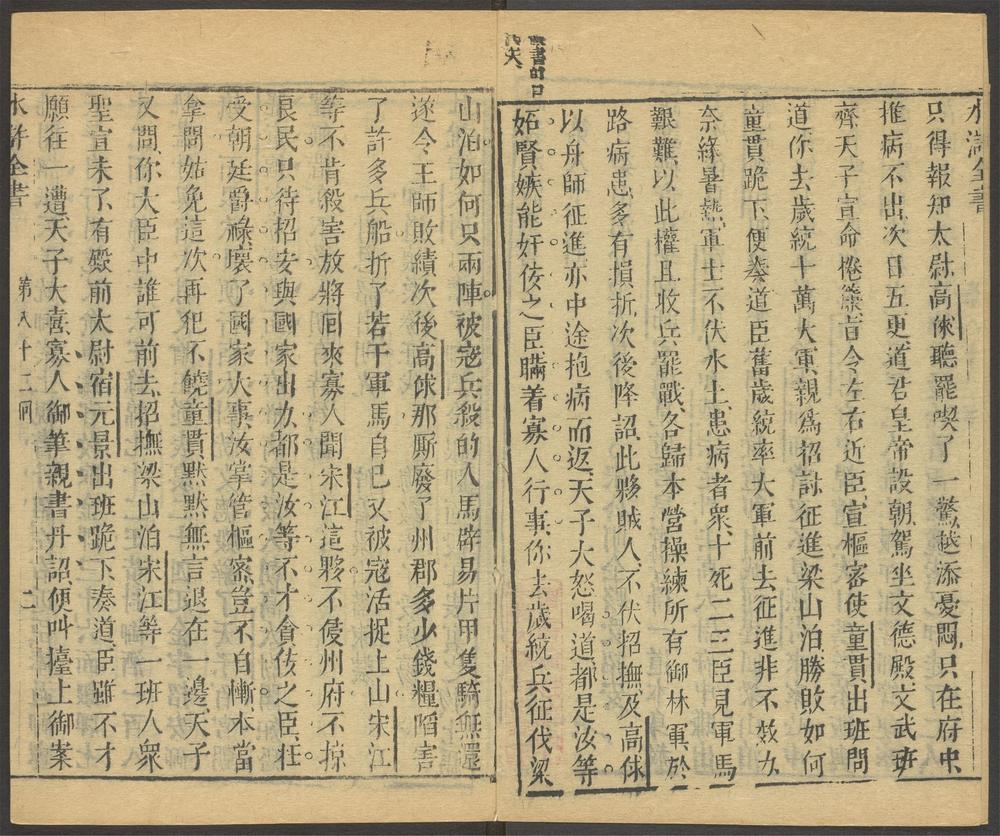 水滸全書
只得報知太尉高俅聽罷喫了一驚越添憂悶只在府中
推病不出次日五更道君皇帝設朝駕坐文德殿文武班
齊天子宣命捲簾旨令左右近臣宣樞密使童貫出班問
道你去歲統十萬大軍親爲招討征進梁山泊勝敗如何
童貫跪下便奏道臣舊歲統率大軍前去征進非不效力
奈緣暑熱軍士不伏水土患病者衆十死二三臣見軍馬
艱難以此權且收兵罷戰各歸本營操練所有御林軍於
路病患多有損折次後降詔此夥賊人不伏招撫及高俅
以舟師征進亦中途抱病而返天子大怒喝道都是汝等
妬賢嫉能奸佞之臣瞞着寡人行事你去歲統兵征伐梁
山泊如何只兩陣被寇兵殺的人馬辟易片甲隻騎無還
遂令王師敗績次後高俅那厮廢了州郡多少錢糧陷害
了許多兵船折了若干軍馬自己又被寇活捉上山宋江
等不肯殺害放將回來寡人聞宋江這夥不侵州府不掠
良民只待招安與國家出力都是汝等不才貪佞之臣枉
受朝廷爵祿壞了國家大事汝掌管樞密豈不自慚本當
拿問姑免這次再犯不饒童貫默默無言退在一邊天子
又問你大臣中誰可前去招撫梁山泊宋江等一班人衆
聖宣未了有殿前太尉宿元景出班跪下奏道臣雖不才
願往一遭天子大喜寡人御筆親書丹詔便叫擡上御案
水滸全書 第八十二囘 二